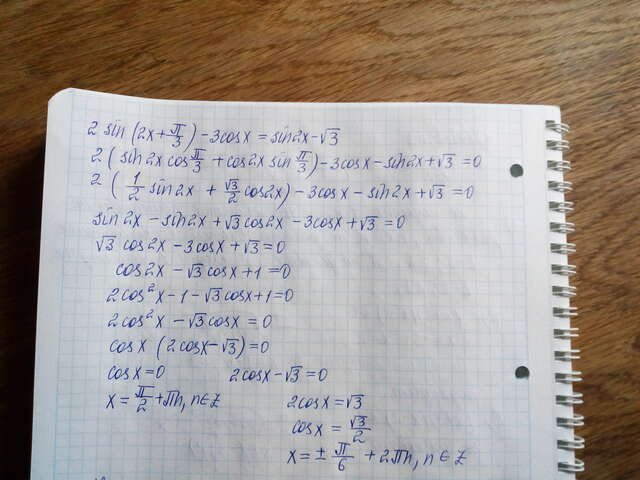 2 sin(2x+π/3) -3cosx = sin2x-√3
2(sin2x cos π/3 + cos2x sin π/3) -3cosx -sin2x+√3 =0
2(1/2 sin2x + √3/2 cos2x) -3cosx -sin2x+√3 =0
sin2x -sin2x+√3 cos2x -3cosx+√3 =0
√3 cos2x -3cosx+√3=0
cos2x -√3cosx+1=0
2cos²x-1-√3cosx+1=0
2cos²x -√3cosx = 0
cosx (2cosx-√3)=0
cosx=0 2cosx-√3=0
x= π/2 +πn, n∈Z 2cosx=√3
cosx = √3/2
x= ± π/6 + 2πn, n∈Z